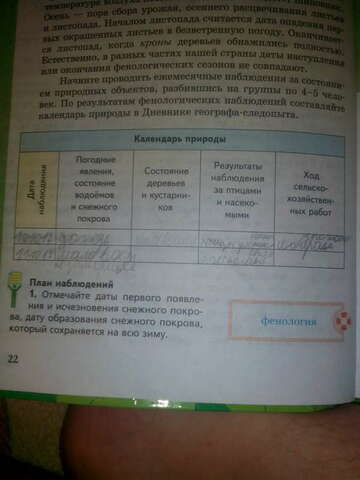 Осень — пора сбора урожая, осеннего расцвечивания листьев
и листопада. Началом листопада считается дата опадения пер-
вых окрашенных листьев в безветренную погоду. Оканчивает-
ся листопад, когда кроны деревьев обнажились полностью.
Естественно, в разных частях нашей страны даты наступления
или окончания фенологических сезонов не совпадают.
Начните проводить ежемесячные наблюдения за состояни-
ем природных объектов, разбившись на группы по 4–5 чело-
век. По результатам фенологических наблюдений составляйте
календарь природы в Дневнике географа-следопыта.
Календарь природы
Дата
наблюдения
Погодные
явления,
состояние
водоёмов
и снежного
покрова
Состояние
деревьев
и кустарни-
ков
Результаты
наблюдения
за птицами
и насеко-
мыми
Ход
сельско-
хозяйствен-
ных работ
План наблюдений
1. Отмечайте даты первого появле-
ния и исчезновения снежного покро-
ва, дату образования снежного покрова,
который сохраняется на всю зиму.
фенология
22